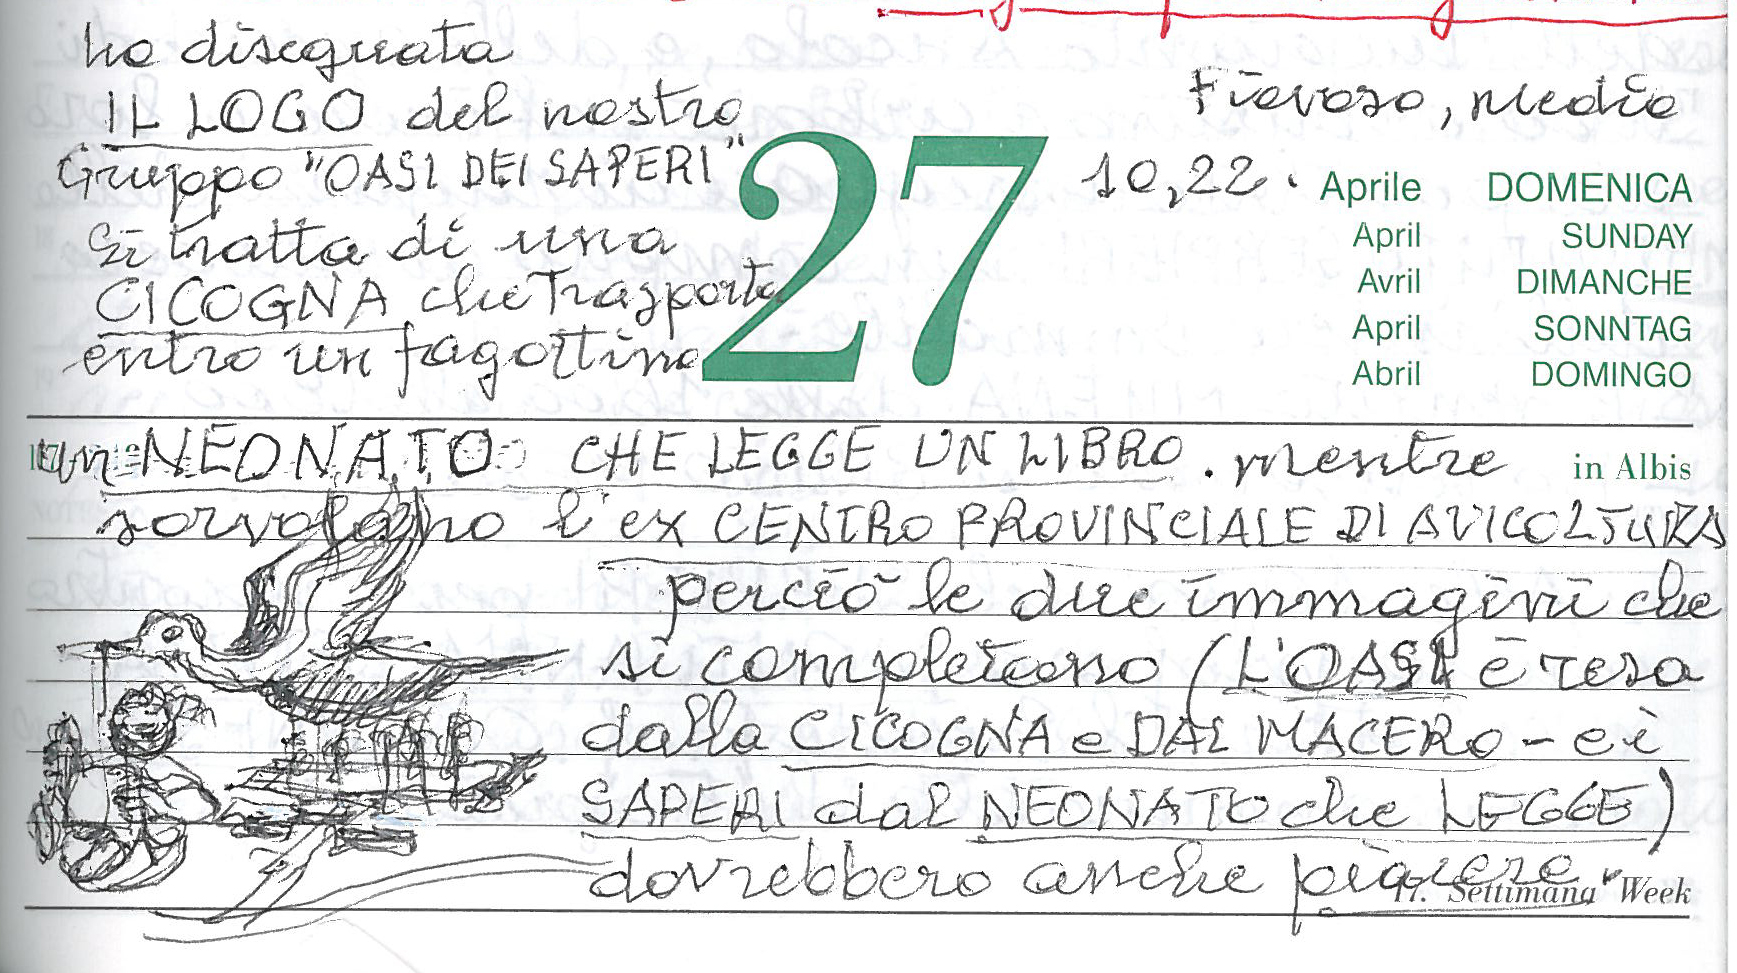 ho disegnata
IL LOGO del nostro
Gruppo "OASI DEI SAPERI"
Si tratta di una
CICOGNA che trasporta
entro un fagottino
27
Piovoso, medio
10,22.
Aprile DOMENICA
April SUNDAY
Avril DIMANCHE
April SONNTAG
Abril DOMINGO
un NEONATO CHE LEGGE UN LIBRO. mentre
in Albis
sorvolano l'ex CENTRO PROVINCIALE DI AVICOLTURA
perciò le due immagini che
si completano (L'OASI è resa
dalla CICOGNA e DAL MACERO - e i
SAPERI dal NEONATO che LEGGE)
dovrebbero anche piacere.
17. Settimana Week